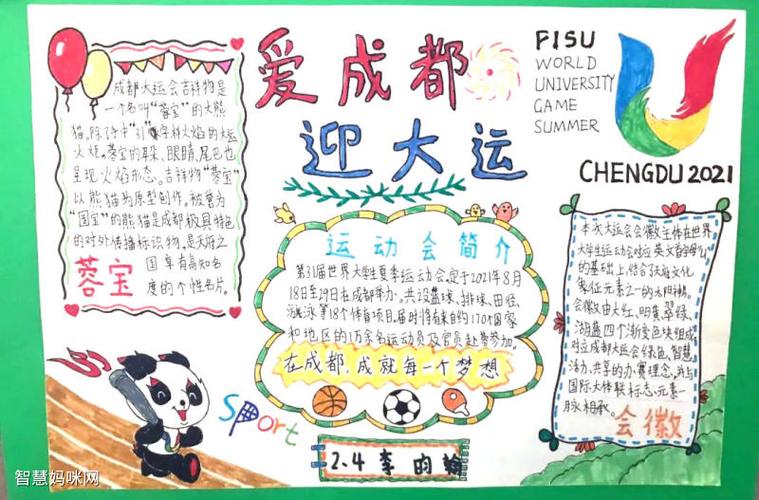 爱成都
迎大运
FISU
WORLD
UNIVERSITY
GAME
SUMMER
CHENGDU 2021
成都大运会吉祥物是
一个名叫“蓉宝”的大熊
猫。除了手中“31”字样火焰的大运
火炬,蓉宝的耳朵、眼睛、尾巴也
呈现火焰形态。吉祥物“蓉宝”
以熊猫为原型创作,被誉为
“国宝”的熊猫是成都极具特色
的对外传播标识物,是天府之
国享有高知名
度的个性名片。
蓉宝
运动会简介
第31届世界大学生夏季运动会,定于2021年8月
18日至29日在成都举办。共设篮球、排球、田径、
游泳等18个体育项目。届时将有来自约170个国家
和地区的1万余名运动员及官员赴蓉参加。
在成都,成就每一个梦想
本次大运会会徽主体在世界
大学生运动会对应英文首字母U
的基础上,结合天府文化
象征元素之一的太阳神鸟。
会徽取由大红、明黄、翠绿、
湖蓝四个渐变色块组成
对应成都大运会绿色、智慧
活力、共享的办赛理念。并与
国际大体联标志元素一
脉相承。
会徽
Sport
2.4 李昀翰
智慧妈咪网